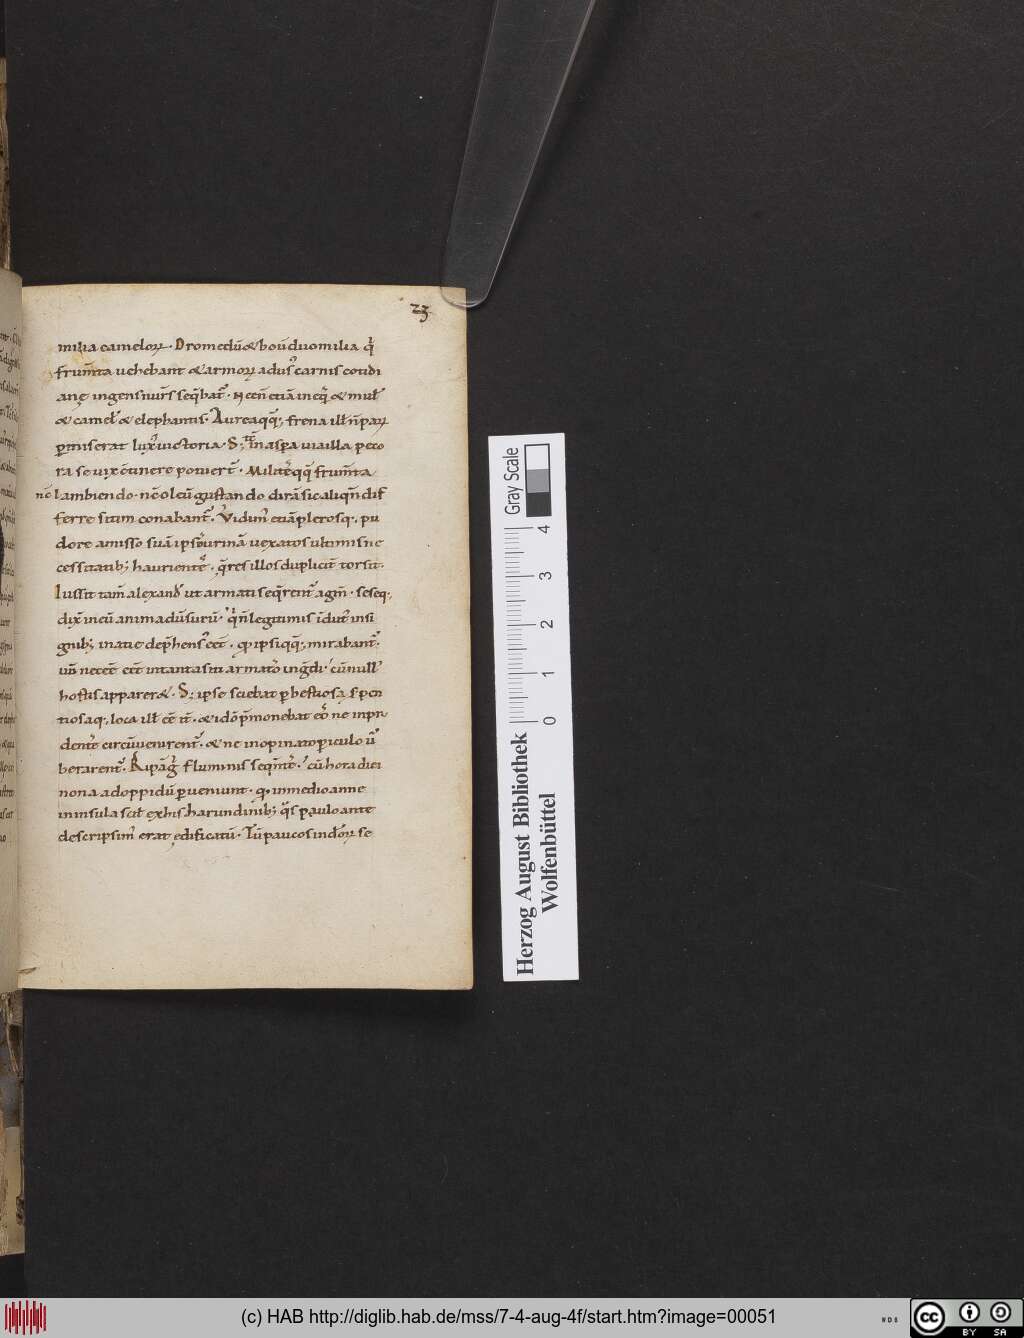 23
milia camelorꝝ. Dromedū & boū duo milia q̄
frum̄ta uehebant & armorꝝ ad us' carnis cotidi
ane ingens num̄s seq̄bat'. Necn̄ etiā in eq̄s & mul'
& camel' & elephantis. Aurea qq; frena ill' n̄ parꝝ
p̄miserat lux' uictoria. S; tn̄ in aspa uia illa peco
ra se uix c̄tinere potuer̄t. Milit' qq frum̄ta
nc̄ lambiendo. nc̄ oleū gustando dirā sic aliqn̄ dif
ferre sitim conabant'. Vidim' etiā plerosq. pu
dore amisso suā ips' urinā uexatos ultimis ne
cessitatib; haurient'. q̄ res illos duplicit' torsit.
Iussit tam̄ alexand' ut armati seq̄rent' agm̄. se seq;
dix' in eū animaduersurū. q̄ n̄ legitimis īdut' insi
gnib; in acie dep̄hens' eēt. qđ ipsi qq; mirabant'.
uñ necēē eēt in tanta siti armat' ingđi. cū null'
hostis apparer&. S; ipse sciebat p bestiosa serpen
tiosaq; loca ill' eē it'. & idō p̄monebat eo' ne inpru
dent' circūuenirent'. & ne inopinato piculo ul'
berarent'. Ripā g' fluminis seq̄nt'. cū hora diei
nona ad oppidū puenimt. qđ in medio anne
in insula scił ex his harundinib; q's paulo ante
descripsim' erat edificatū. Tū paucos indorꝝ se
Gray Scale
0 1 2 3 4
Herzog August Bibliothek
Wolfenbüttel
(c) HAB http://diglib.hab.de/mss/7-4-aug-4f/start.htm?image=00051
WDB
cc BY SA